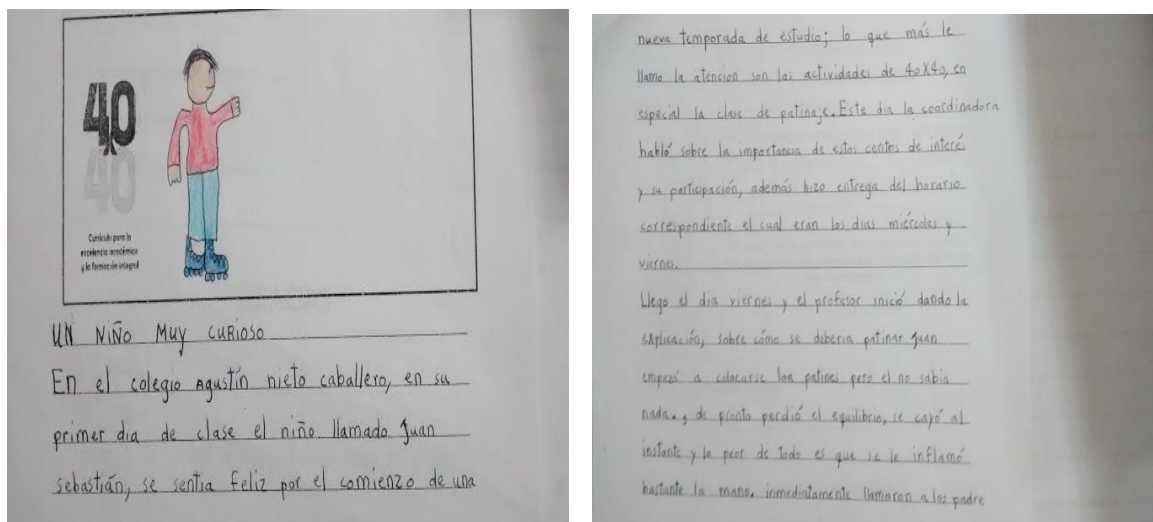 40
40
Currículo para la
excelencia académica
y la formación integral
UN NIÑO MUY CURIOSO
En el colegio Agustín nieto caballero, en su
primer dia de clase el niño llamado Juan
sebastián, se sentia feliz por el comienzo de una
nueva temporada de estudio; lo que más le
llamo la atencion son las actividades de 40X40, en
especial la clase de patinaje. Este dia la coordinadora
habló sobre la importancia de estos centos de interés
y su participación, además hizo entrega del horario
correspondiente el cual eran los dias miércoles y
viernes.
Llego el dia viernes y el profesor inició dando la
explicación, sobre cómo se deberia patinar Juan
empezó a colocarse los patines pero el no sabia
nada., de pronto perdió el equilibrio, se cayó al
instante y lo peor de todo es que se le inflamó
bastante la mano. inmediatamente llamaron a los padre